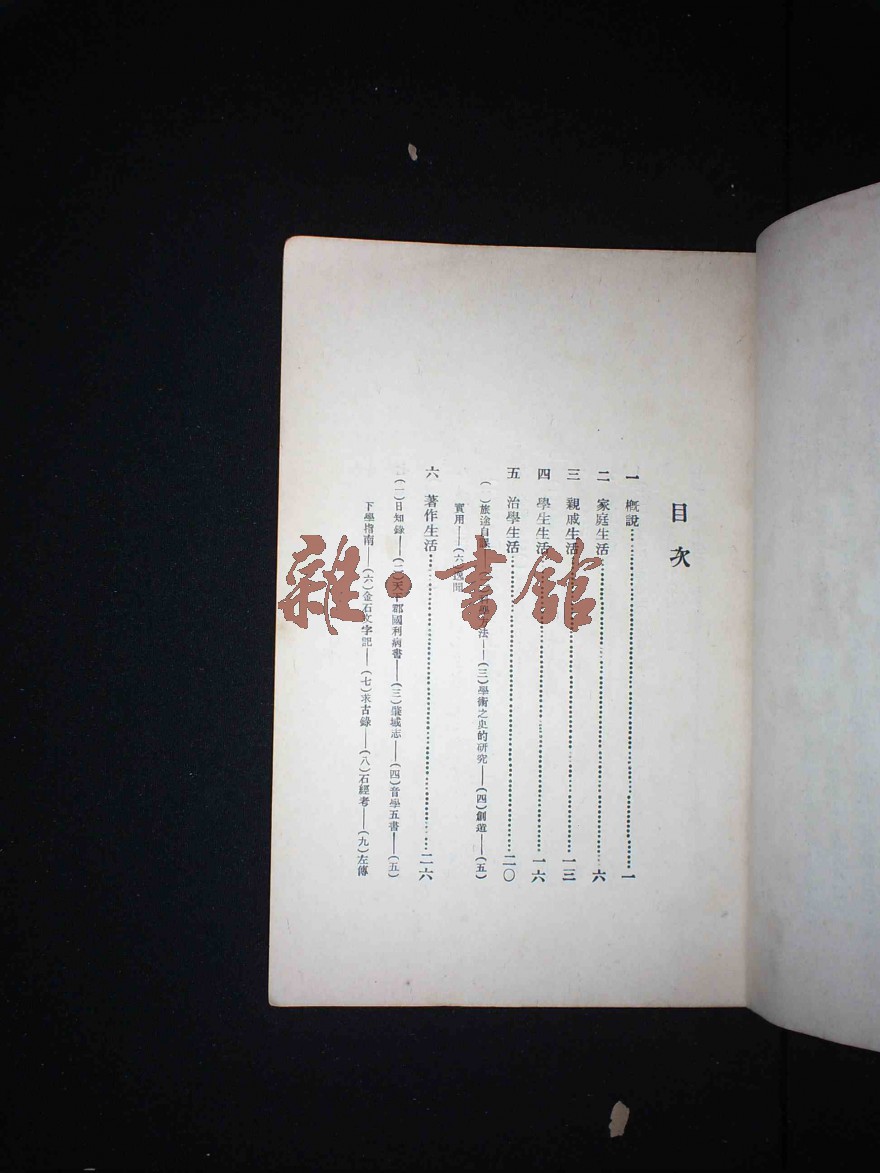 目次
一　概說……………一
二　家庭生活……………六
三　親戚生活……………一三
四　學生生活……………一六
五　治學生活……………二〇
(一)旅途自課——方法——(三)學術之史的研究——(四)創造——(五)
實用——(六)逸聞
六　著作生活……………二六
(一)日知錄——(二)天下郡國利病書——(三)肇域志——(四)音學五書——(五)
下學指南——(六)金石文字記——(七)求古錄——(八)石經考——(九)左傳
雜·書館